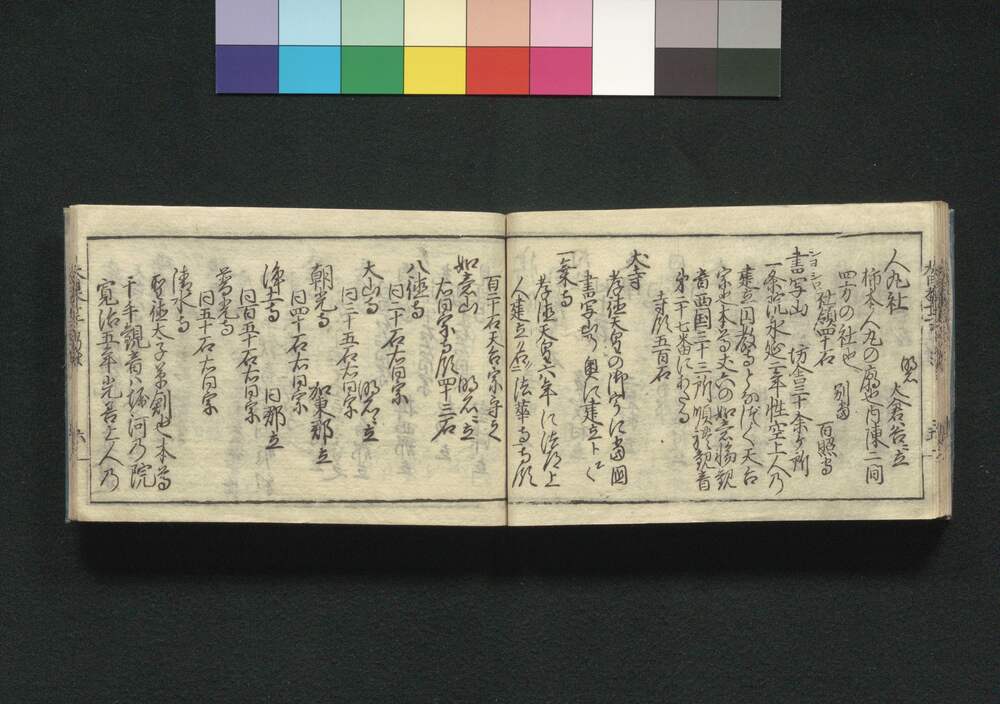 人丸社 明石 大倉谷ニ立
柿本人丸の廟也内陳二間
四方の社也 別当
社領四十石 月照寺
書写山 坊舎三十余ケ所
一条院永延二年性空上人乃
建立円教寺
宗也本尊丈六の如意輪観
音西国三十三所順礼観音
第二十七番にあたる
寺領五百石
太寺
孝徳天皇の御宇に当国
書写山より奥に建立ト云
一乗寺
孝徳天皇六年に法道上
人建立ノ名ニ法華寺寺領
百二十石天台宗守之
如意山 明石ニ立
右同宗寺領四十三石
八徳寺
同二十石右同宗
大山寺 明石ニ立
同二十五石右同宗
朝光寺 加東郡ニ立
同四十石右同宗
浄土寺 同郡立
同百五十石右同宗
普光寺
同五十石右同宗
清水寺
聖徳太子草創也本尊
千手観音八堀河乃院
寛治五年光善上人乃